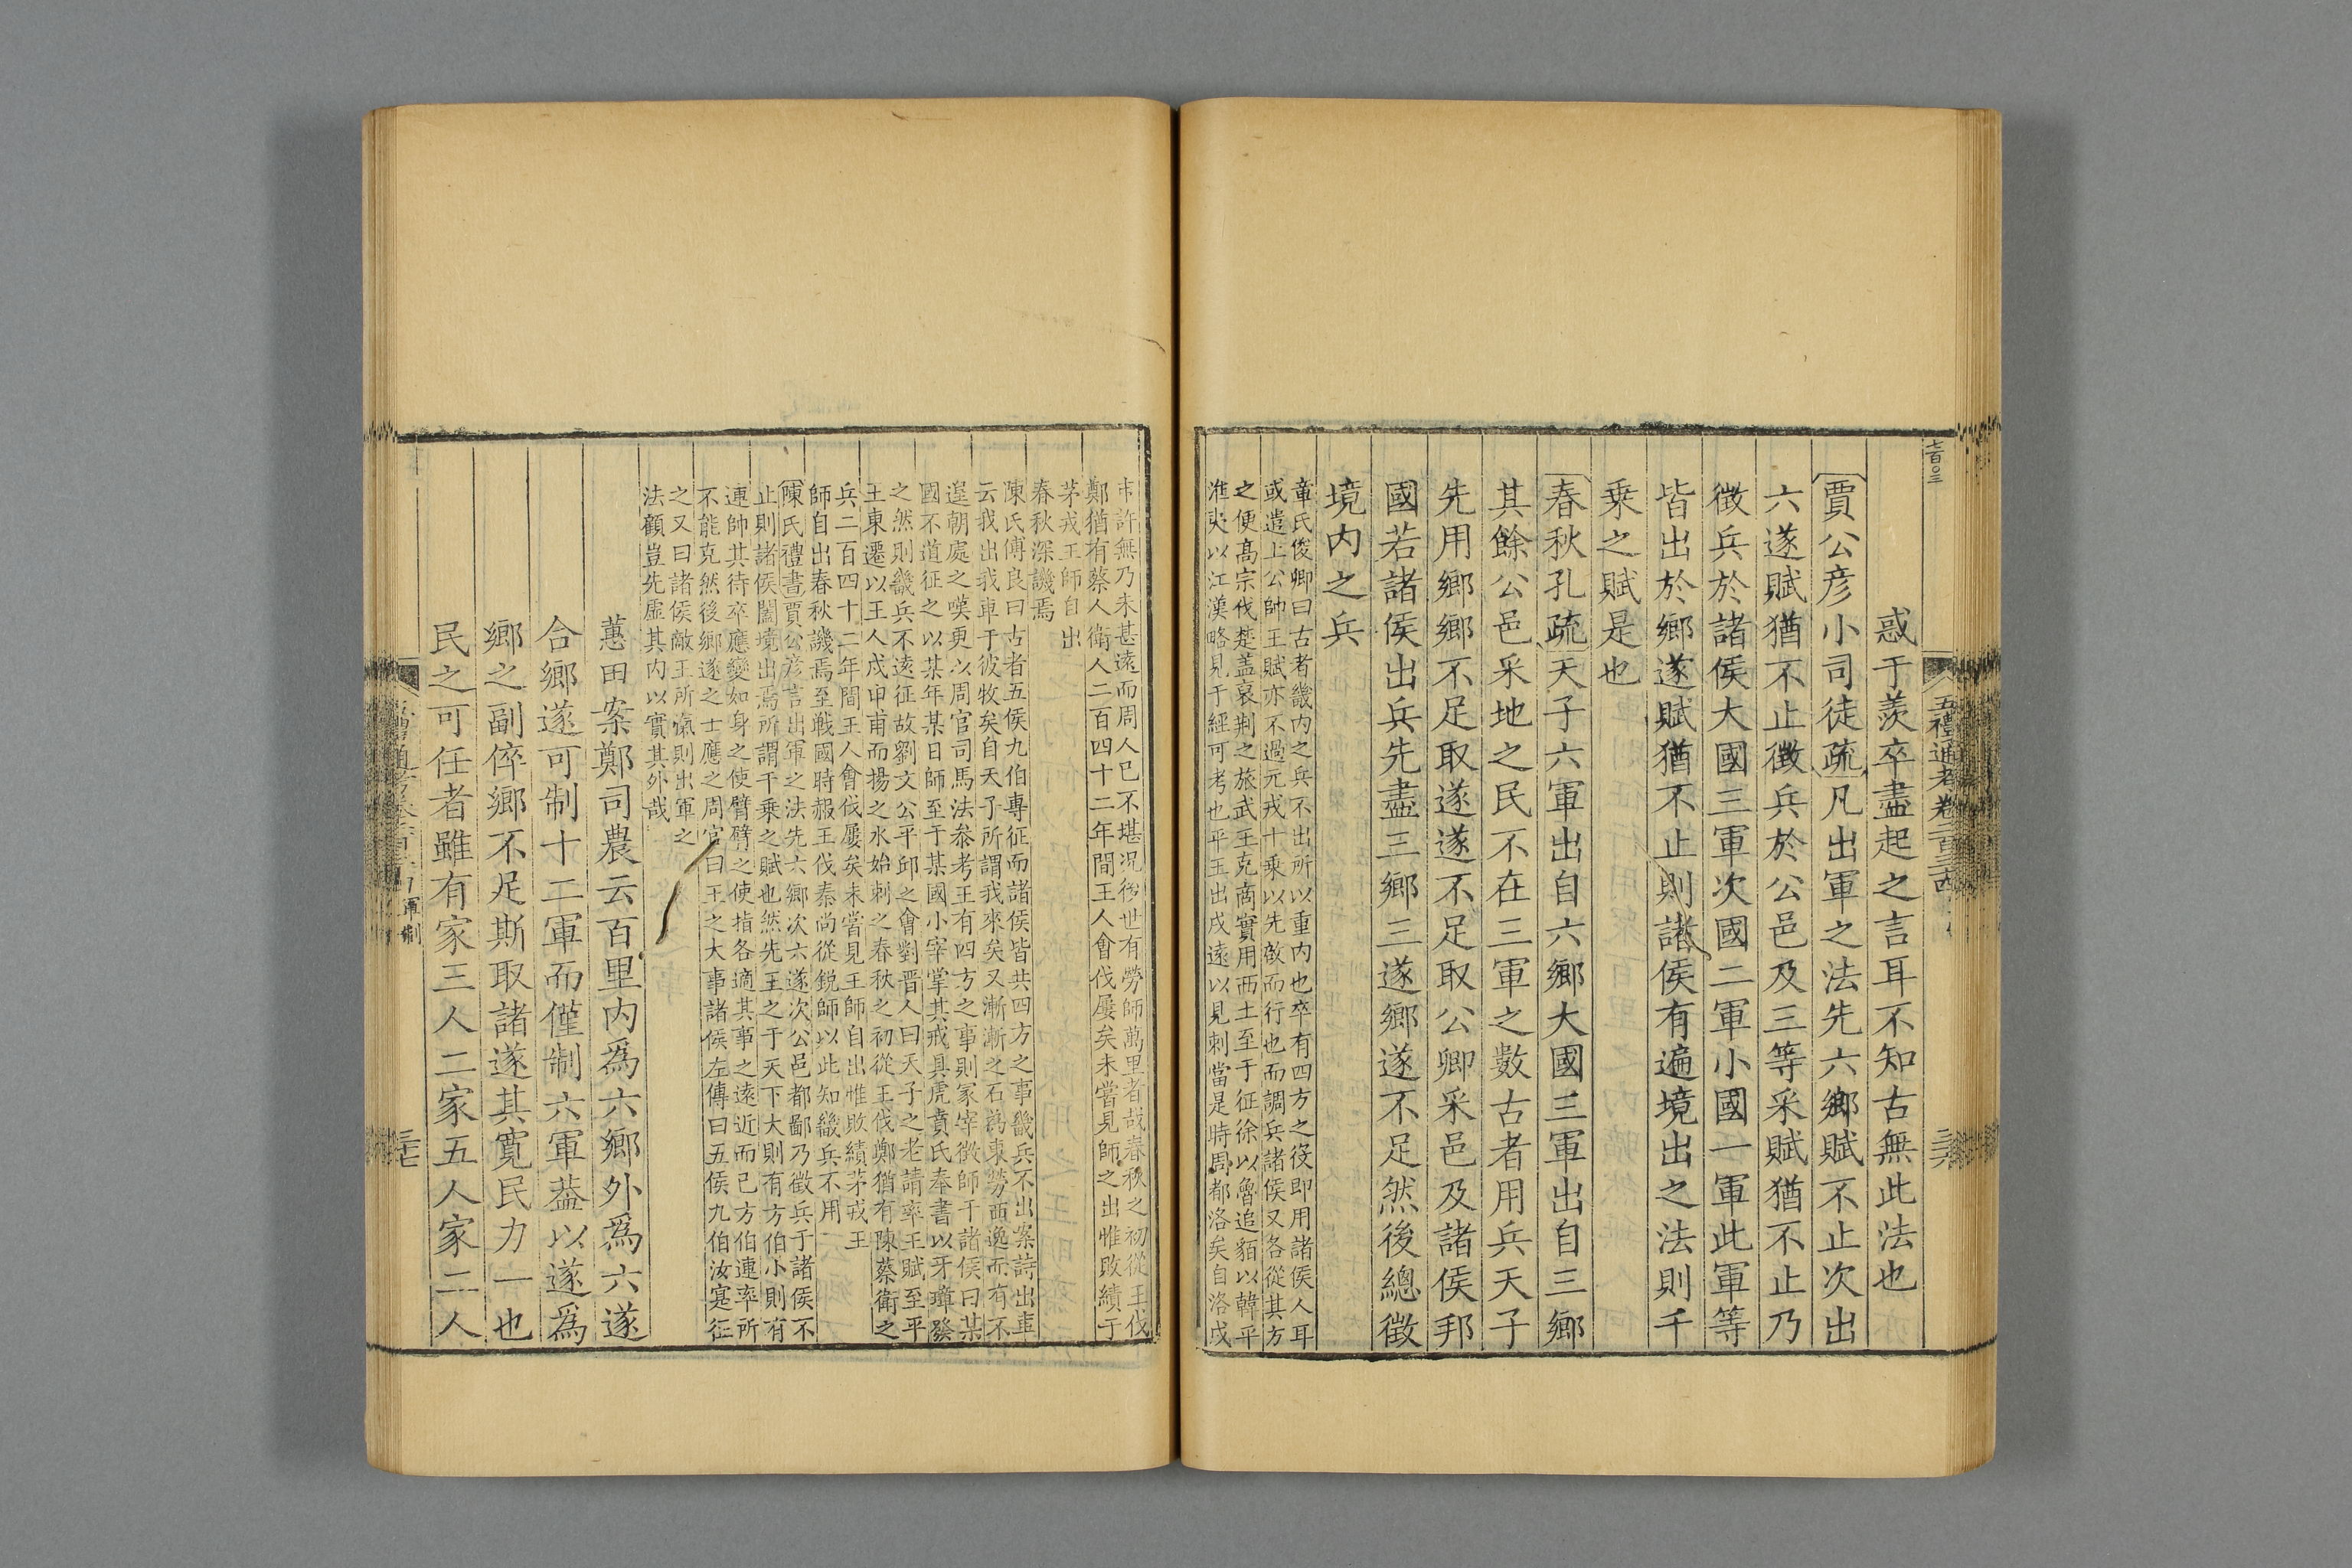 七百〇三
五禮通考卷二百三十四
二六
惑于羨卒盡起之言耳不知古無此法也
賈公彦小司徒疏凡出軍之法先六鄉賦不止次出
六遂賦猶不止徴兵於公邑及三等采賦猶不止乃
徴兵於諸侯大國三軍次國二軍小國一軍此軍等
皆出於鄉遂賦猶不止則諸侯有遍境出之法則千
乗之賦是也
春秋孔疏天子六軍出自六鄉大國三軍出自三鄉
其餘公邑采地之民不在三軍之數古者用兵天子
先用鄉鄉不足取遂遂不足取公卿采邑及諸侯邦
國若諸侯出兵先盡三鄉三遂鄉遂不足然後總徴
境内之兵
章氏俊卿曰古者畿内之兵不出所以重内也卒有四方之役即用諸侯人耳
或遣上公帥王賦亦不過元戎十乗以先啟而行也而調兵諸侯又各從其方
之便高宗伐楚蓋裒荆之旅武王克商實用西土至于征徐以魯追貊以韓平
淮夷以江漢略見于經可考也平王出戍遠以見刺當是時周都洛矣自洛戍
申許無乃未甚遠而周人已不堪况後世有勞師萬里者哉春秋之初從王伐
鄭猶有蔡人衛人二百四十二年間王人會伐屢矣未嘗見師之出惟敗績于
茅戎王師自出
春秋深譏焉
陳氏傅良曰古者五侯九伯專征而諸侯皆共四方之事畿兵不出案詩出車
云我出我車于彼牧矣自天子所謂我來矣又漸漸之石為東勞而逸而有不
遑朝處之嘆更以周官司馬法叅考王有四方之事則冢宰徴師于諸侯曰某
國不道征之以某年某日師至于某國小宰掌其戒具虎賁氏奉書以牙璋發
之然則畿兵不遠征故劉文公平邱之會對晉人曰天子之老請率王賦至平
王東遷以王人戍申甫而揚之水始刺之春秋之初從王伐鄭猶有陳蔡衛之
兵二百四十二年間王人會伐屢矣未嘗見王師自出惟敗績茅戎王
師自出春秋譏焉至戰國時赧王伐秦尚從鋭師以此知畿兵不用
陳氏禮書賈公彦言出軍之法先六鄉次六遂次公邑都鄙乃徴兵于諸侯不
止則諸侯闔境出焉所謂千乗之賦也然先王之于天下大則有方伯小則有
連帥其待卒應變如身之使臂臂之使指各適其事之遠近而已方伯連率所
不能克然後鄉遂之士應之周官曰王之大事諸侯左傳曰五侯九伯汝寔征
之又曰諸侯敵王所愾則出軍之
法顧豈先虚其内以實其外哉
蕙田案鄭司農云百里内為六鄉外為六遂
合鄉遂可制十二軍而僅制六軍葢以遂為
鄉之副倅鄉不足斯取諸遂其寛民力一也
民之可任者雖有家三人二家五人家二人
軍制
二七